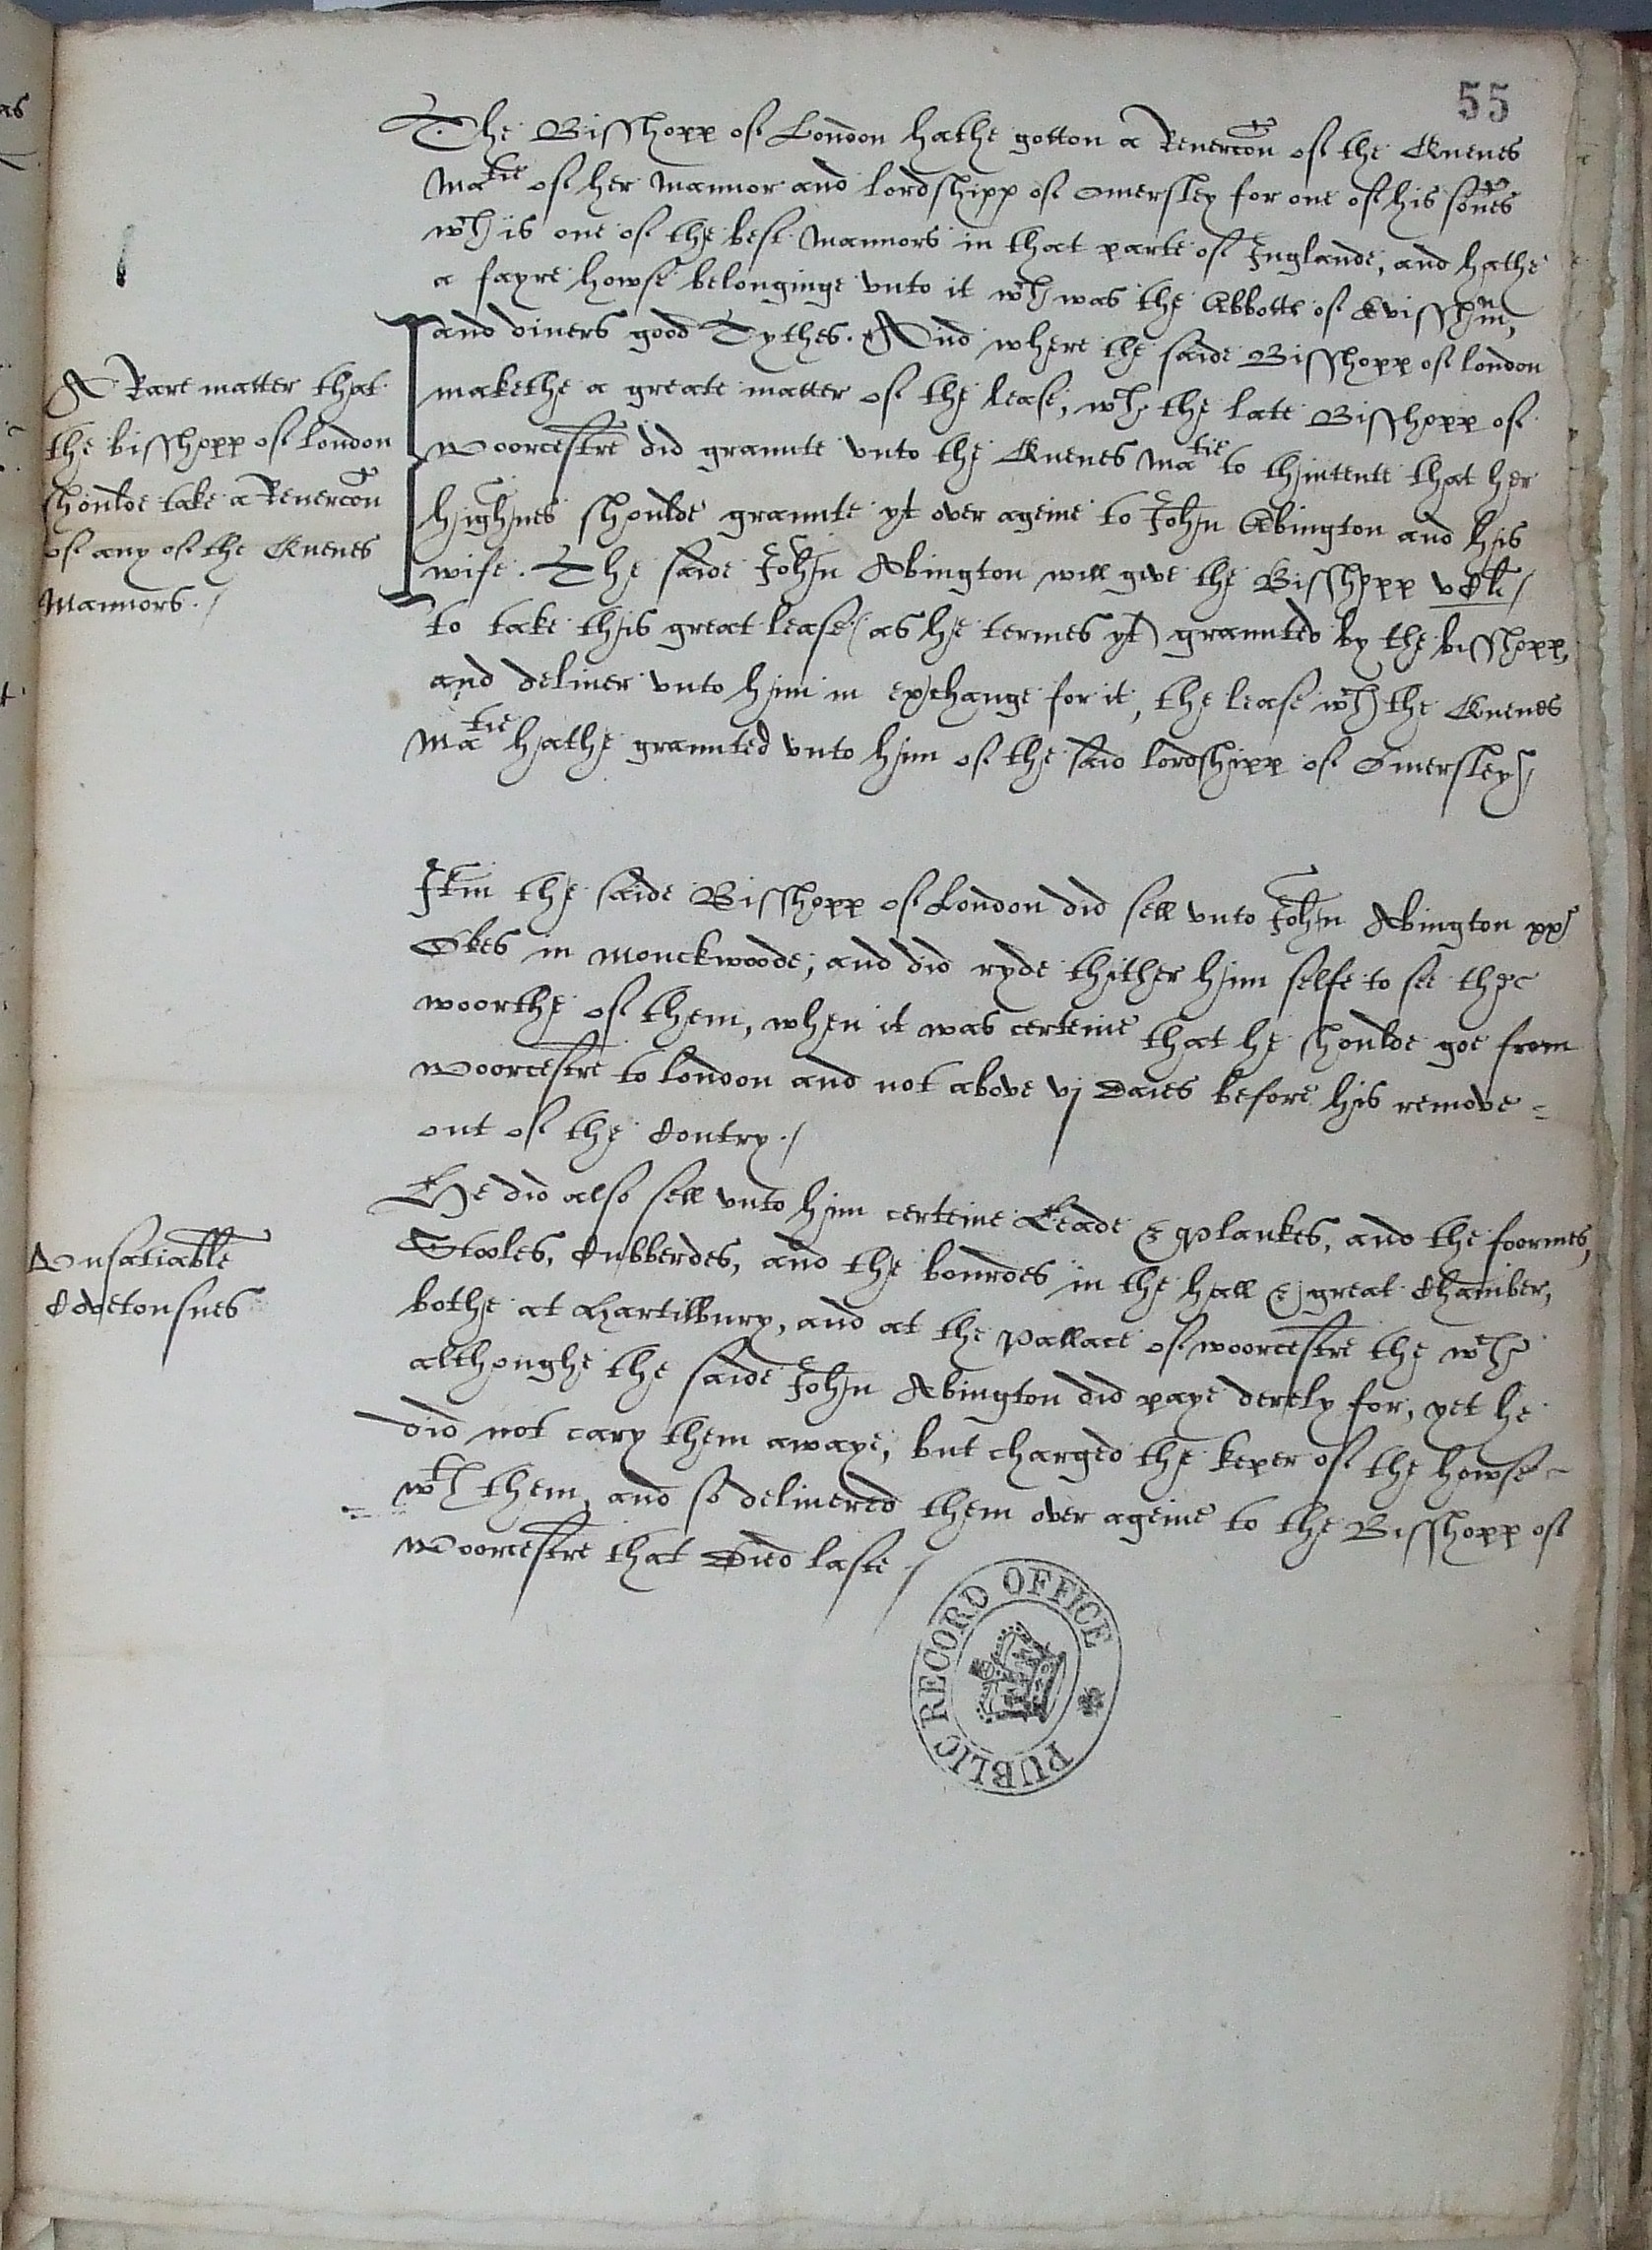 55
The Bisshopp of London hathe gotton a Reuercon of the Quenes
Matie of her Mannor and lordshipp of Omersley for one of his sonnes
wch is one of the best Mannors in that parte of Inglande, and hathe
a fayre howse belonginge vnto it wch was the Abbotts of Evisshm,
and diuers good Tythes. And where the saide Bisshopp of london
makethe a greate matter of the lease, wch the late Bisshopp of
Woorcestre did graunte vnto the Quenes Matie to thintente that her
highnes shoulde graunte yt over ageine to John Abington and his
wife. The saide John Abington will give the Bisshopp vCli /
to take this great lease (as he termes yt) graunted by the bisshopp,
and deliuer vnto him in exchange for it, the lease wch the Quenes
Matie hathe graunted vnto him of the said lordshipp of Omersley /
A Rare matter that
the bisshopp of london
shoulde take a Reuercon
of any of the Quenes
Mannors. /
Itm the saide Bisshopp of London did sell vnto John Abington xx
Okes in Monckwoode, and did ryde thither him selfe to see the
woorthe of them, when it was certeine that he shoulde goe from
Woorcestre to london and not above vj Daies before his remove
out of the Contry. /
He did also sell vnto him certeine Leade & Plankes, and the foormes,
Stooles, Cubberdes, and the bourdes in the hall & great Chamber,
bothe at Hartilbury, and at the Pallace of woorcestre the wch
althoughe the saide John Abington did paye derely for, yet he
did not cary them awaye, but charged the keper of the howse
wth them, and so deliuered them over ageine to the Bisshopp of
Woorcestre that Died laste /
Vnsatiable
Covetousnes
PUBLIC RECORD OFFICE